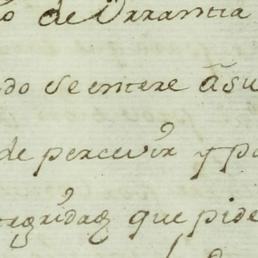 o de Urrantia
do se entere â su
de percevir y po
que pide